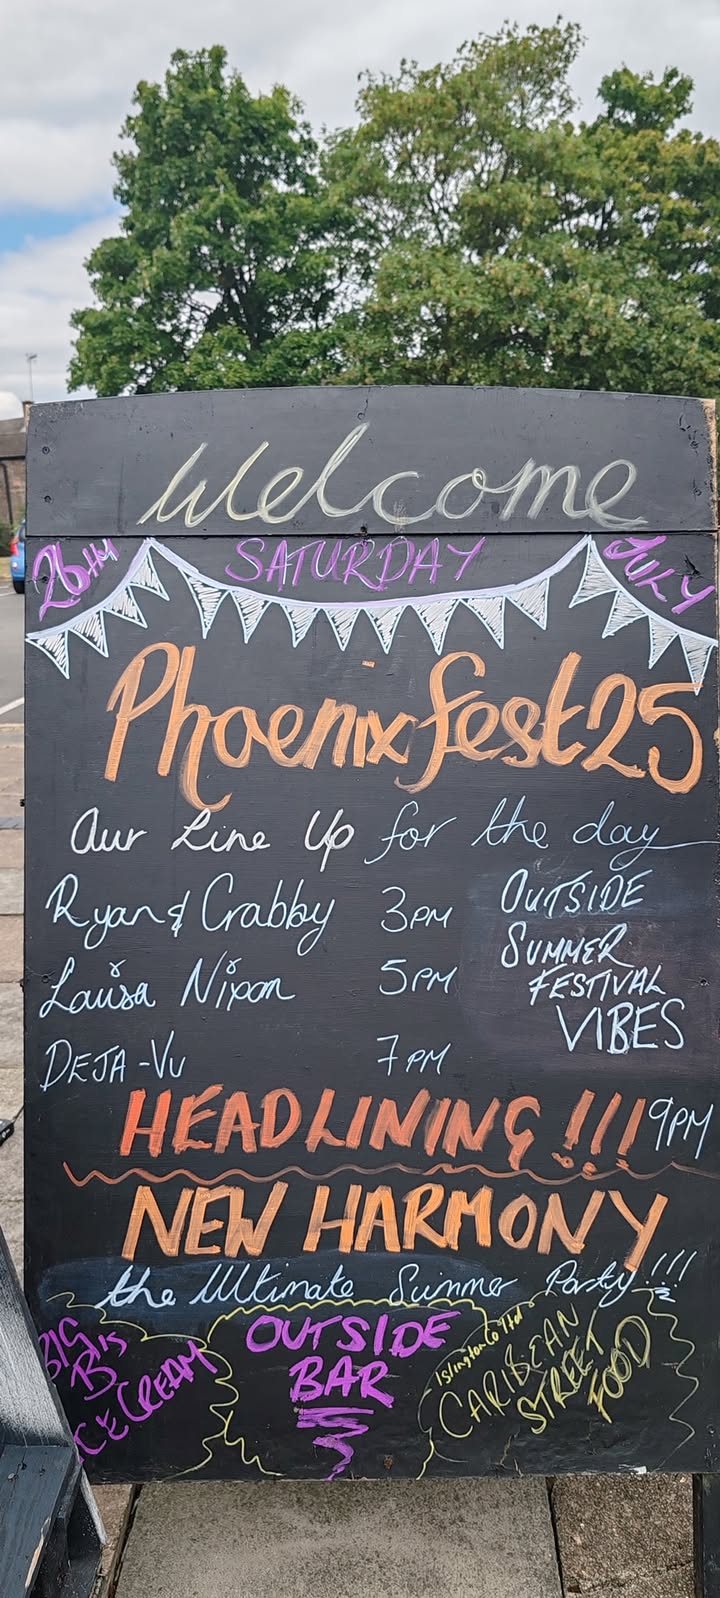 Welcome
26TH SATURDAY JULY
Phoenixfest25
Our Line Up for the day
Ryan & Crabby 3PM
Louisa Nixon 5PM
DEJA-VU 7PM
OUTSIDE
SUMMER
FESTIVAL
VIBES
HEADLINING!!! 9PM
NEW HARMONY
the Ultimate Summer Party!!!
BIG
B's
ICECREAM
OUTSIDE
BAR
Islington Co ltd
CARIBEAN
STREET
FOOD